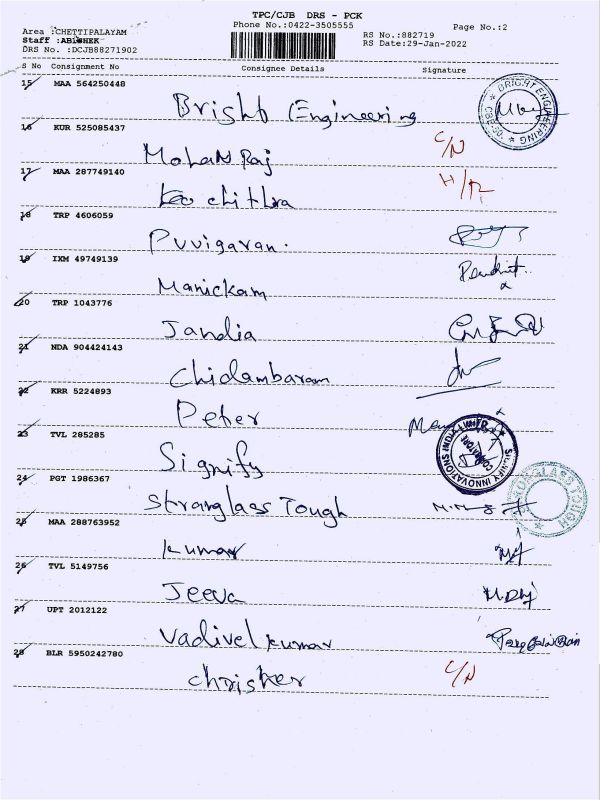 TPC/CJB DRS - PCK
Phone No.:0422-3505555
Page No.:2
Area :CHETTIPALAYAM
Staff :ABISHEK
DRS No. :DCJB88271902
RS No.:882719
RS Date:29-Jan-2022
S No Consignment No Consignee Details Signature
15 MAA 564250448
Bright Engineering
BRIGHT ENGINEERING
16 KUR 525085437
Mohan Raj C/N
17 MAA 287749140
chithra
18 TRP 4606059
Puvigaran.
19 IXM 49749139
Manickam
20 TRP 1043776
Jandia
21 NDA 904424143
Chidambaram
22 KRR 5224893
Peter
23 TVL 285285
Signify
SIGNIFY INNOVATIONS INDIA
24 PGT 1986367
Stronglass Tough
GLASS TOUGH
25 MAA 288763952
Kumar
26 TVL 5149756
Jeeva
27 UPT 2012122
Vadivel kumar
28 BLR 5950242780
christer C/N